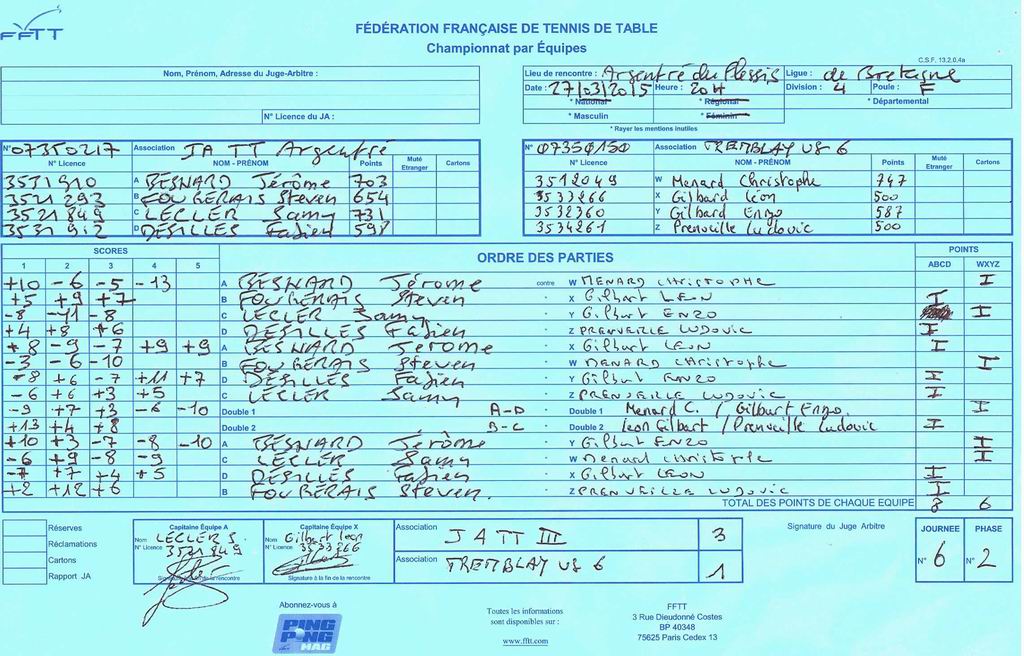 FFTT
FÉDÉRATION FRANÇAISE DE TENNIS DE TABLE
Championnat par Équipes
C.S.F. 13.2.0.4a
Nom, Prénom, Adresse du Juge-Arbitre :
N° Licence du JA :
Lieu de rencontre : Argentré du Plessis Ligue : de Bretagne
Date : 27/03/2015 Heure : 20H Division : 4 Poule : F
* National * Régional * Départemental
* Masculin * Féminin
* Rayer les mentions inutiles
N° 07350217 Association JA TT Argentré
N° Licence NOM - PRÉNOM Points Muté Etranger Cartons
3531910 A BESNARD Jérôme 703
3521293 B FOUGERAIS Steven 654
3521849 C LECLER Samy 731
3531912 D DESILLES Fabien 598
N° 07350150 Association TREMBLAY US 6
N° Licence NOM - PRÉNOM Points Muté Etranger Cartons
3512049 W Menard Christophe 747
3533266 X Gilbard Léon 500
3532360 Y Gilbard Enzo 587
3534261 Z Prenveille Ludovic 500
SCORES ORDRE DES PARTIES POINTS
1 2 3 4 5 ABCD WXYZ
+10 -6 -5 -13 A BESNARD Jérome contre W MENARD CHRISTOPHE I
+5 +9 +7 B FOUGERAIS Steven - X Gilbart LEON I
-8 -11 -8 C LECLER Samy - Y Gilbart ENZO I
+4 +8 +6 D DESILLES Fabien - Z PRENVEILLE LUDOVIC I
+8 -9 -7 +9 +9 A BESNARD Jérome - X Gilbart LEON I
-3 -6 -10 B FOUGERAIS Steven - W MENARD CHRISTOPHE I
-8 +6 -7 +11 +7 D DESILLES Fabien - Y Gilbart ENZO I
-6 +6 +3 +5 C LECLER Samy - Z PRENVEILLE LUDOVIC I
-9 +7 +3 -6 -10 Double 1 A-D - Double 1 Menard C. / Gilburt Enzo. I
+13 +4 +8 Double 2 B-C - Double 2 Leon Gilbart / Prenveille Ludovic I
+10 +3 -7 -8 -10 A BESNARD Jérôme - Y Gilbart ENZO I
-6 +9 -8 -9 C LECLER Samy - W Menard christophe I
-7 +7 +4 +5 D DESILLES Fabien - X Gilbart LEON I
+2 +12 +6 B FOUGERAIS Steven. - Z PRENVEILLE LUDOVIC I
TOTAL DES POINTS DE CHAQUE EQUIPE 8 6
Réserves
Réclamations
Cartons
Rapport JA
Capitaine Équipe A
Nom LECLER S.
N° Licence 3521849
Signature à la fin de la rencontre
Capitaine Équipe X
Nom Gilbart leon
N° Licence 3533266
Signature à la fin de la rencontre
Association JATT III 3
Association TREMBLAY US 6 1
Signature du Juge Arbitre
JOURNEE PHASE
N° 6 N° 2
Abonnez-vous à
PING PONG MAG
Toutes les informations
sont disponibles sur :
www.fftt.com
FFTT
3 Rue Dieudonné Costes
BP 40348
75625 Paris Cedex 13